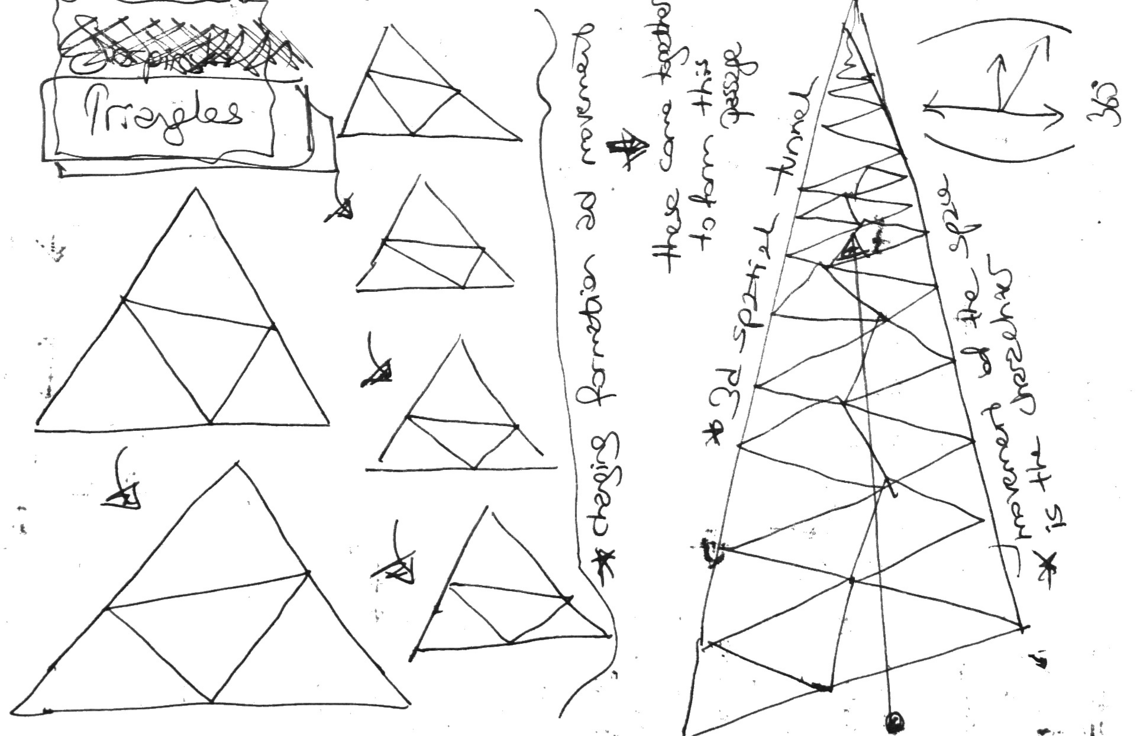 Triangles
* changing formation and movement
these come together
to form this
passage
* 3d spatial tunnel
movement of the space
* is the parameter
360